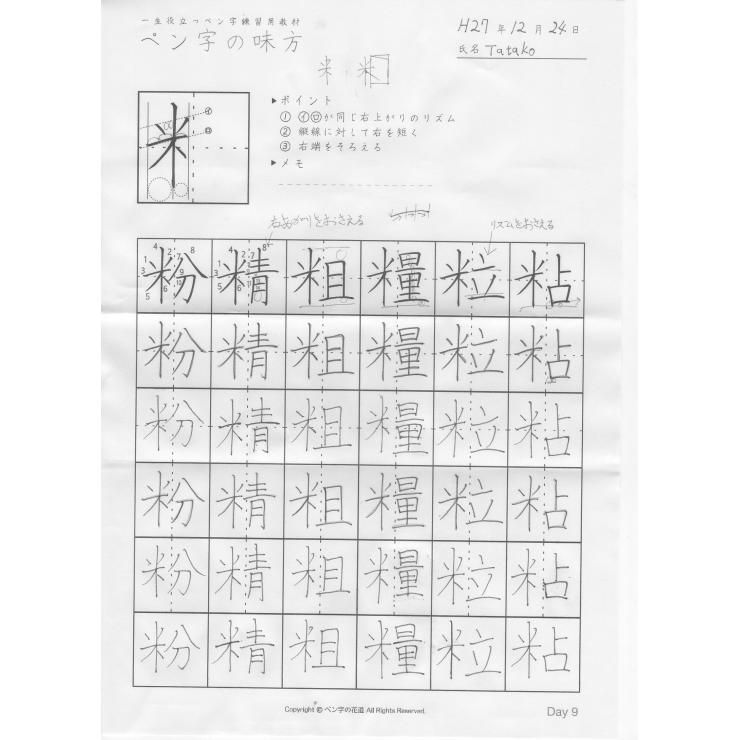 一生役立つペン字練習用教材
ペン字の味方
H27年12月24日
氏名 Tatako
米 米
米
イ
ロ
▶ポイント
① イロが同じ右上がりのリズム
② 縦線に対して右を短く
③ 右端をそろえる
▶メモ
右上がりをおさえる
リズムをおさえる
粉 精 粗 糧 粒 粘
粉 精 粗 糧 粒 粘
粉 精 粗 糧 粒 粘
粉 精 粗 糧 粒 粘
粉 精 粗 糧 粒 粘
粉 精 粗 糧 粒 粘
Copyright © ペン字の花道 All Rights Reserved.
Day 9